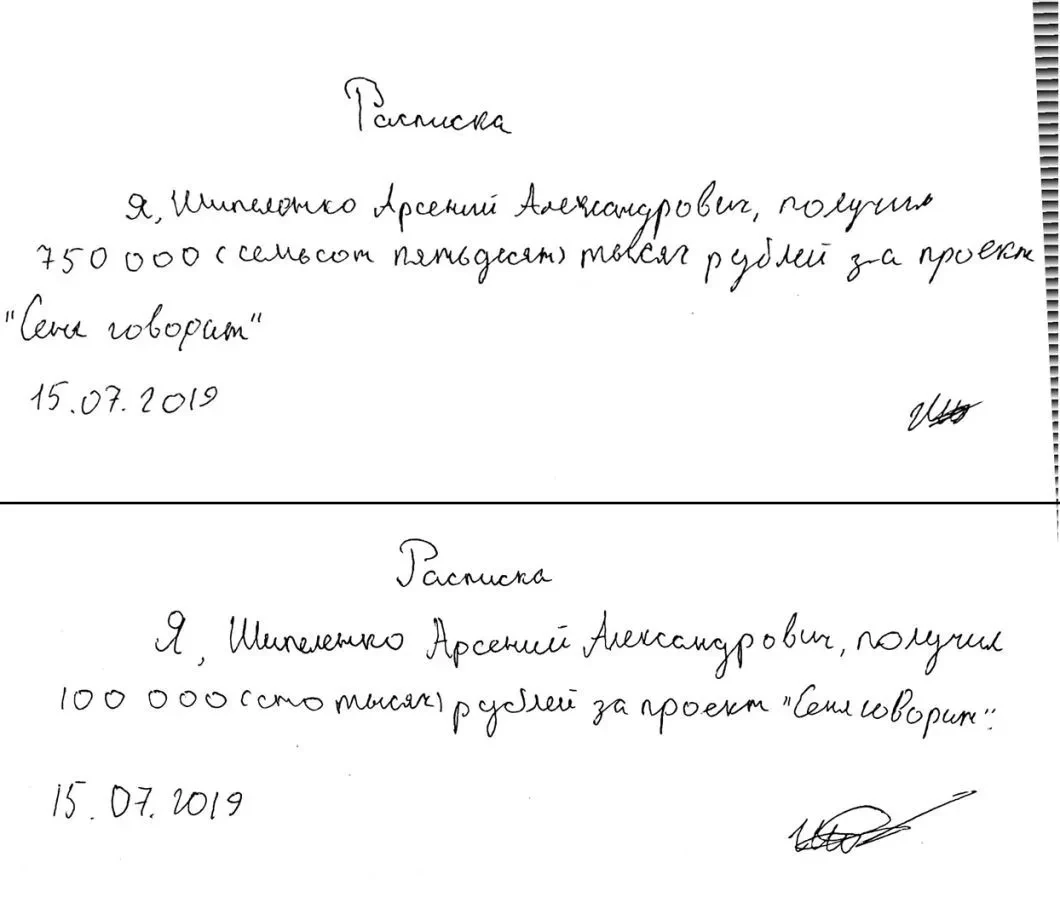 Расписка
Я, Шипеленко Арсений Александрович, получил
750 000 (семьсот пятьдесят) тысяч рублей за проект
"Сеня говорит"
15.07.2019
Расписка
Я, Шипеленко Арсений Александрович, получил
100 000 (сто тысяч) рублей за проект "Сеня говорит".
15.07.2019